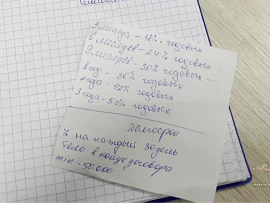 3 месяца - 18% годовых
6 месяцев - 24% годовых
9 месяцев - 30% годовых
1 год - 36% годовых
2 года - 42% годовых
3 года - 50% годовых
% на каждый 30 день
тело в конце договора
min - 50 000